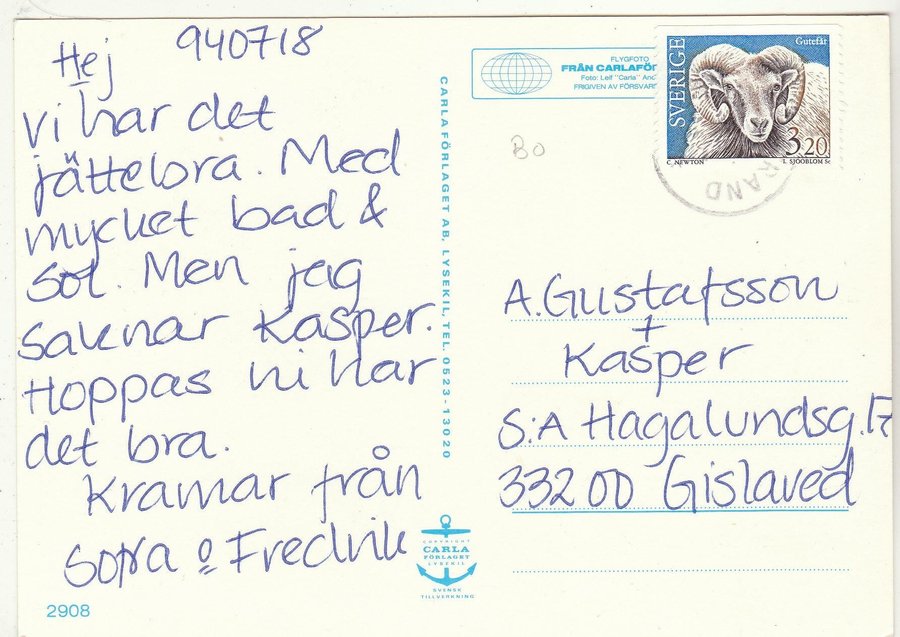 Hej 940718
vi har det
jättebra. Med
mycket bad &
sol. Men jag
saknar Kasper.
Hoppas ni har
det bra.
Kramar från
Sofia o Fredrik
2908
CARLA FÖRLAGET AB, LYSEKIL, TEL. 0523-13020
COPYRIGHT
CARLA
FÖRLAGET
LYSEKIL
SVENSK
TILLVERKNING
FLYGFOTO
FRÅN CARLAFÖR
Foto: Leif "Carla" And
FRIGIVEN AV FÖRSVAR
SVERIGE
Gutefår
3.20
C. NEWTON
L. SJÖÖBLOM Sc
RAND
BO
A. Gustafsson
+
Kasper
S:A Hagalundsg. 17
33200 Gislaved